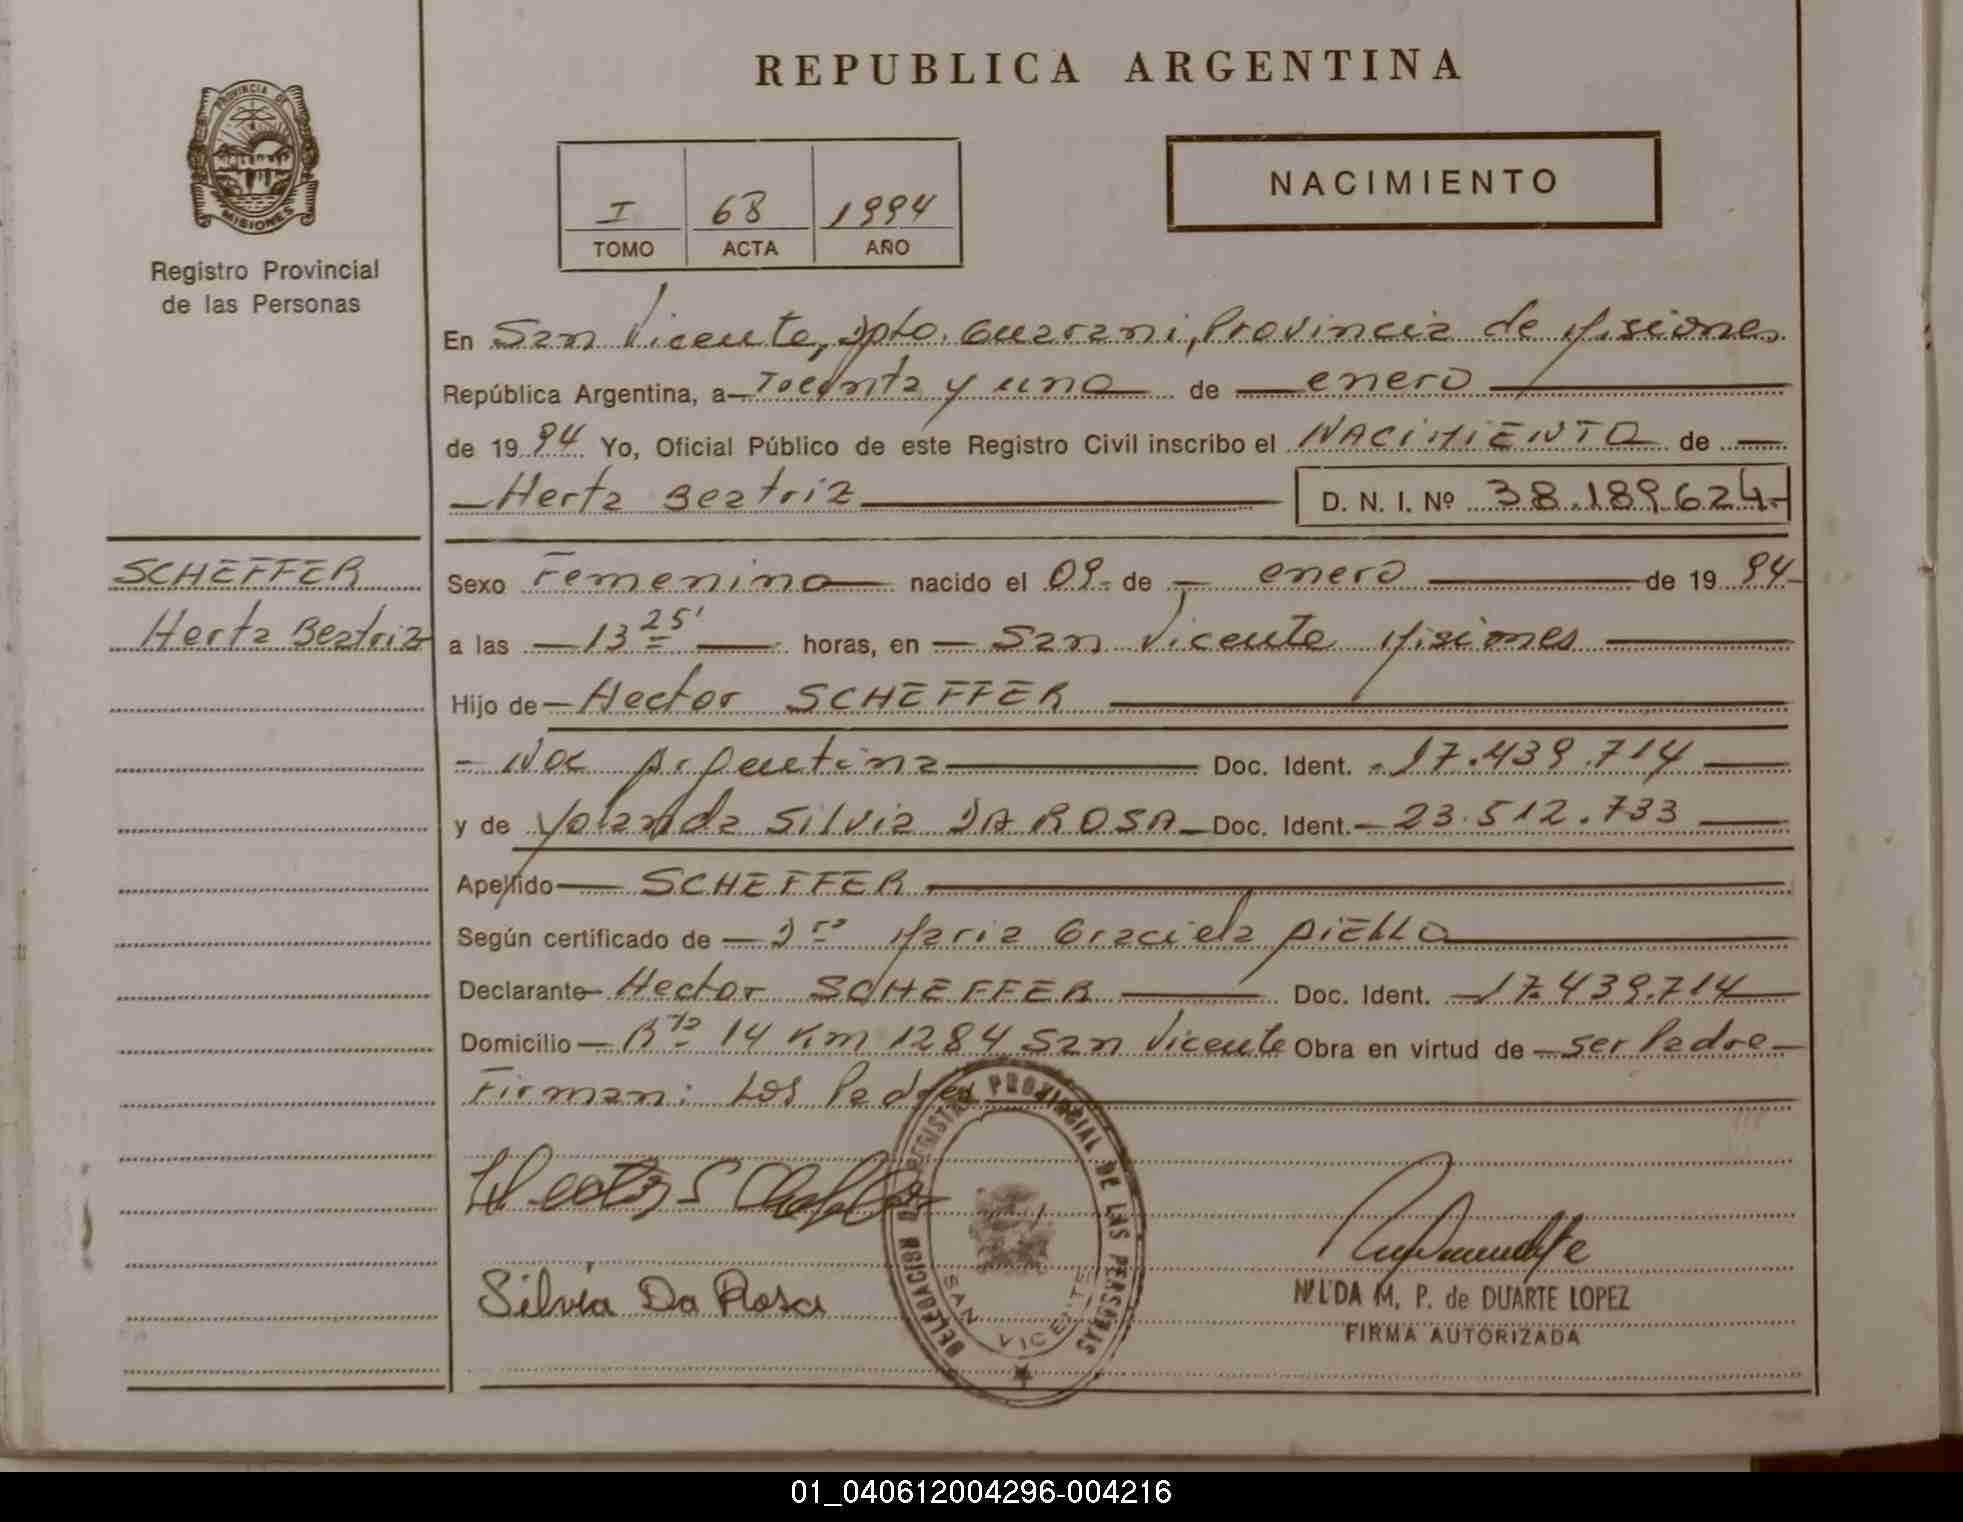 REPUBLICA ARGENTINA
PROVINCIA DE
MISIONES
Registro Provincial
de las Personas
I 68 1994
TOMO ACTA AÑO
NACIMIENTO
En San Vicente, Dpto. Guarani, Provincia de Misiones.
República Argentina, a Treinta y uno de enero
de 19 94 Yo, Oficial Público de este Registro Civil inscribo el NACIMIENTO de
Herta Beatriz D. N. I. Nº 38.189.624.-
SCHEFFER
Herta Beatriz
Sexo Femenino nacido el 09 de enero de 19 94
a las 13 25' horas, en San Vicente Misiones
Hijo de Hector SCHEFFER
Nac Argentina Doc. Ident. 17.439.714
y de Yolanda Silvia DA ROSA Doc. Ident. 23.512.733
Apellido SCHEFFER
Según certificado de Dra Maria Graciela AIELLO
Declarante Hector SCHEFFER Doc. Ident. 17.439.714
Domicilio Rta 14 Km 1284 San Vicente Obra en virtud de ser Padre
Firman: Los Padres
Hector Scheffer
Silvia Da Rosa
DELEGACION DEL REGISTRO PROVINCIAL DE LAS PERSONAS
SAN VICENTE
NILDA M. P. de DUARTE LOPEZ
FIRMA AUTORIZADA
01_040612004296-004216